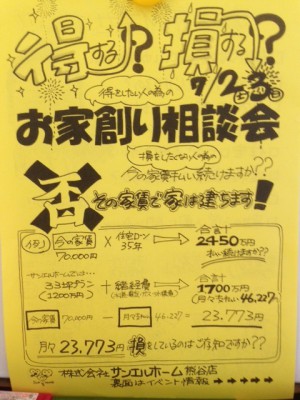 得する!? 損する!?
9/2(土)3(日)
得をしたい人の為の
お家創り相談会
損をしたくない人の為の
今の家賃払い続けますか??
否 その家賃で家は建ちます!
例) 今の家賃 70,000円 × 住宅ローン 35年 → 合計 2450万円
払い続けますか??
サンエルホームでは…
33坪プラン (1200万円) + 諸経費 → 合計 1700万円
(月々支払い 46,227円)
今の家賃 70,000円 - 月々支払い 46,227円 = 23,773円
月々 23,773円 損をしているのはご存知ですか??
株式会社サンエルホーム 熊谷店
裏面はイベント情報